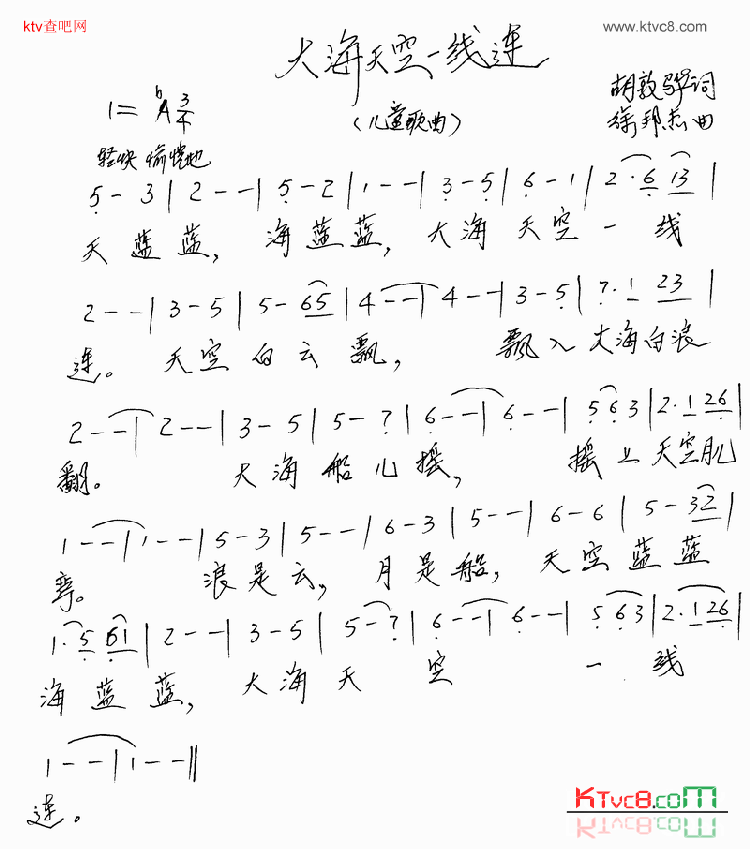 ktv查吧网
www.ktvc8.com
大海天空一线连
胡敦骅词
1=♭A 3/4
(儿童歌曲)
徐邦杰曲
轻快 愉悦地
5 - 3 | 2 - - | 5 - 2 | 1 - - | 3 - 5 | 6 - 1 | 2 · 6 13 |
天 蓝 蓝, 海 蓝 蓝, 大 海 天 空 一 线
2 - - | 3 - 5 | 5 - 65 | 4 - - | 4 - - | 3 - 5 | 7 · 1 23 |
连。 天 空 白 云 飘, 飘 入 大 海 白 浪
2 - - | 2 - - | 3 - 5 | 5 - 7 | 6 - - | 6 - - | 5 6 3 | 2 · 1 26 |
翻。 大 海 船 儿 摇, 摇 上 天 空 月儿
1 - - | 1 - - | 5 - 3 | 5 - - | 6 - 3 | 5 - - | 6 - 6 | 5 - 32 |
弯。 浪 是 云, 月 是 船, 天 空 蓝 蓝
1 · 5 61 | 2 - - | 3 - 5 | 5 - 7 | 6 - - | 6 - - | 5 63 | 2 · 126 |
海 蓝 蓝, 大 海 天 空 一 线
1 - - | 1 - - ||
连。
KTvc8.com